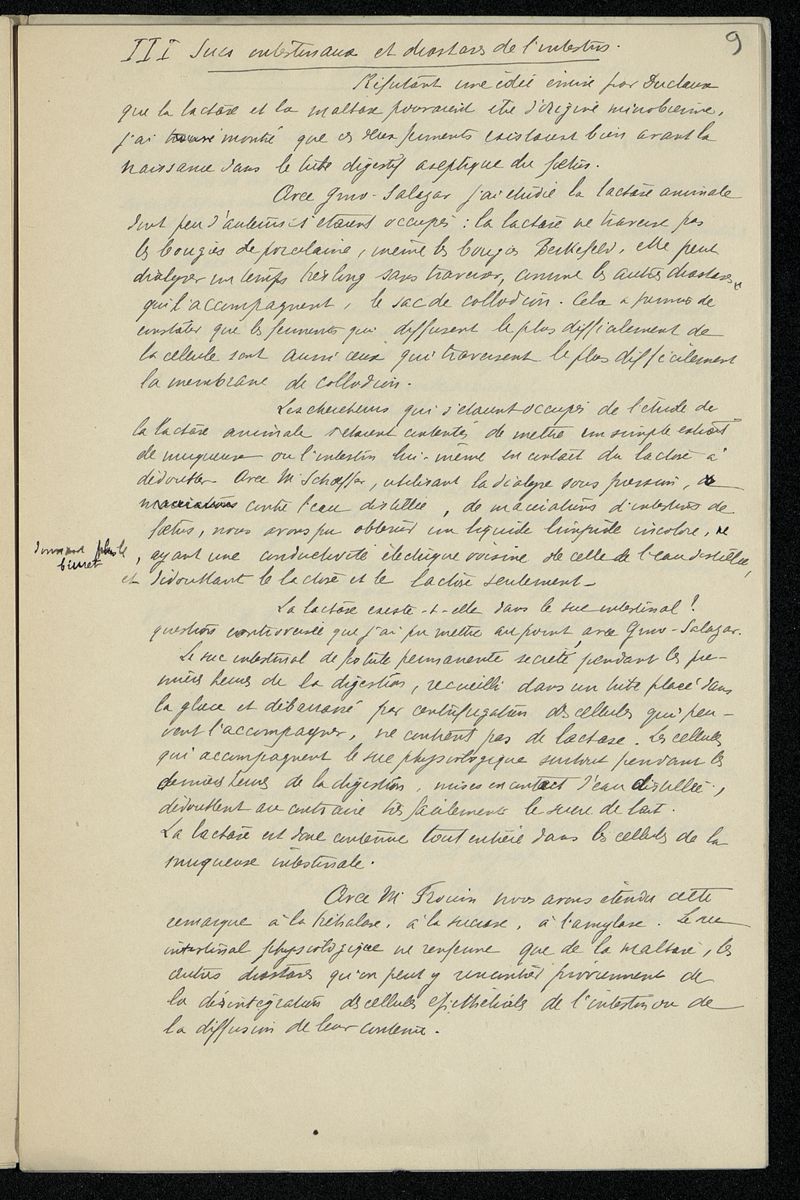 9
III Sucs intestinaux et diastases de l'intestin.
Réfutant une idée émise par Duclaux
que la lactase et la maltase pourraient être d'origine microbienne,
j'ai trouvé montré que ces deux ferments existaient bien avant la
naissance dans le tube digestif aseptique du fœtus.
Avec Gmo-Salazar j'ai étudié la lactase animale
dont peu d'auteurs s'étaient occupés : la lactase ne traverse pas
les bougies de porcelaine, même les bougies Berkefeld, elle peut
dialyser un temps très long sans traverser, comme les autres diastases
qui l'accompagnent, le sac de collodion. Cela a permis de
constater que les ferments qui diffusent le plus difficilement de
la cellule sont aussi ceux qui traversent le plus difficilement
la membrane de collodion.
Les chercheurs qui s'étaient occupés de l'étude de
la lactase animale s'étaient contentés de mettre un simple extrait
de muqueuse ou l'intestin lui-même en contact du lactose à
dédoubler. Avec M. Schæffer, utilisant la dialyse sous pression, de
macérations contre l'eau distillée, de macérations d'intestins de
fœtus, nous avons pu obtenir un liquide limpide incolore, ne
donnant plus le
biuret
, ayant une conductivité électrique voisine de celle de l'eau distillée,
et dédoublant le lactose et le lactose seulement -
La lactase existe-t-elle dans le suc intestinal ?
question controversée que j'ai pu mettre au point, avec Gmo-Salazar.
Le suc intestinal de fistule permanente secrété pendant les pre-
mières heures de la digestion, recueilli dans un tube placé dans
la glace et débarrassé par centrifugation des cellules qui peu-
vent l'accompagner, ne contient pas de lactase. Les cellules
qui accompagnent le suc physiologique surtout pendant les
dernières heures de la digestion, mises en contact d'eau distillée,
dédoublent au contraire très facilement le sucre de lait.
La lactase est donc contenue tout entière dans les cellules de la
muqueuse intestinale.
Avec M. Frouin nous avons étendu cette
remarque à la tréhalase, à la sucrase, à l'amylase. Le suc
intestinal physiologique ne renferme que de la maltase, les
autres diastases qu'on peut y rencontrer proviennent de
la désintégration des cellules épithéliales de l'intestin ou de
la diffusion de leur contenu.